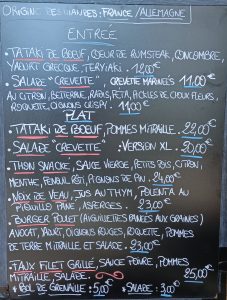 ORIGINE DES VIANDES: FRANCE/ALLEMAGNE
ENTRÉE
• TATAKI DE BOEUF, COEUR DE RUMSTEAK, CONCOMBRE,
YAOURT GRECQUE, TERIYAKI. 12,00€
• SALADE "CREVETTE", CREVETTE MARINÉES 11,00€
AU CITRON, BETTERAVE, RADIS, FETA, PICKLES DE CHOUX FLEURS,
ROQUETTE, OIGNONS CRISPY. 11,00€
PLAT
• TATAKI DE BOEUF, POMMES MITRAILLE. 22,00€
• SALADE "CREVETTE" VERSION XL. 20,00€
• THON SNACKÉ, SAUCE VIERGE, PETITS POIS, CITRON,
MENTHE, FENOUIL RÔTI, PIGNONS DE PIN. 24,00€
• NOIX DE VEAU, JUS AU THYM, POLENTA AU
PIQUILLO PANÉ, ASPERGES. 23,00€
• BURGER POULET (AIGUILLETTES PANÉES AUX GRAINES)
AVOCAT, YAOURT, OIGNONS ROUGES, ROQUETTE, POMMES
DE TERRE MITRAILLE ET SALADE. 23,00€
• FAUX FILET GRILLÉ, SAUCE POIVRE, POMMES
MITRAILLE, SALADE. 25,00€
* BOL DE GRENAILLE: 5,00€ * SALADE: 3,00€